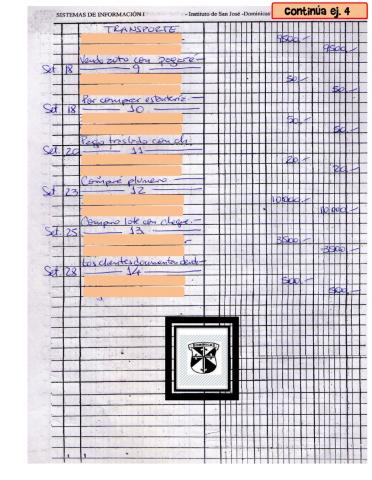 SISTEMAS DE INFORMACIÓN I - Instituto de San José -Dominicos
Continúa ej. 4
TRANSPORTE
9500.-
9500.-
Vendo auto con pagaré-
Set 18 9
50.-
50.-
Por comprar
Set 18 10
50.-
50.-
Pago traslado con ch.
Set. 20 11
20.-
20.-
Compré plumero.-
Set 23 12
10.000.-
10.000.-
Compro lote con cheque.-
Set. 25 13
3500.-
3500.-
Los clientes documentan deuda-
Set 28 14
500.-
500.-